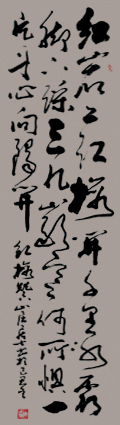 红岩上红梅开千里冰霜
脚下踩三九严寒何所惧一
片丹心向阳开 红梅赞